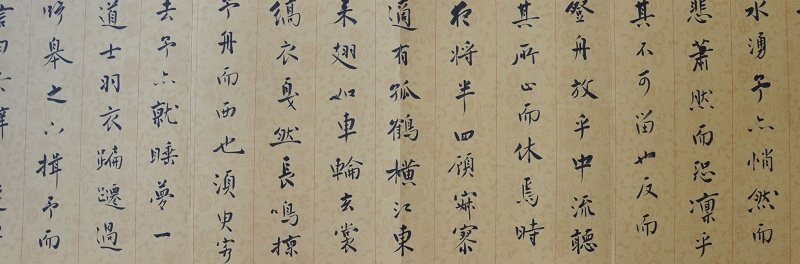 水湧予亦悄然而
悲蕭然而恐凜乎
其不可留也反而
登舟放乎中流聽
其所止而休焉時
夜將半四顧寂寥
適有孤鶴橫江東
來翅如車輪玄裳
縞衣戛然長鳴掠
予舟而西也須臾客
去予亦就睡夢一
道士羽衣蹁躚過
臨皋之下揖予而